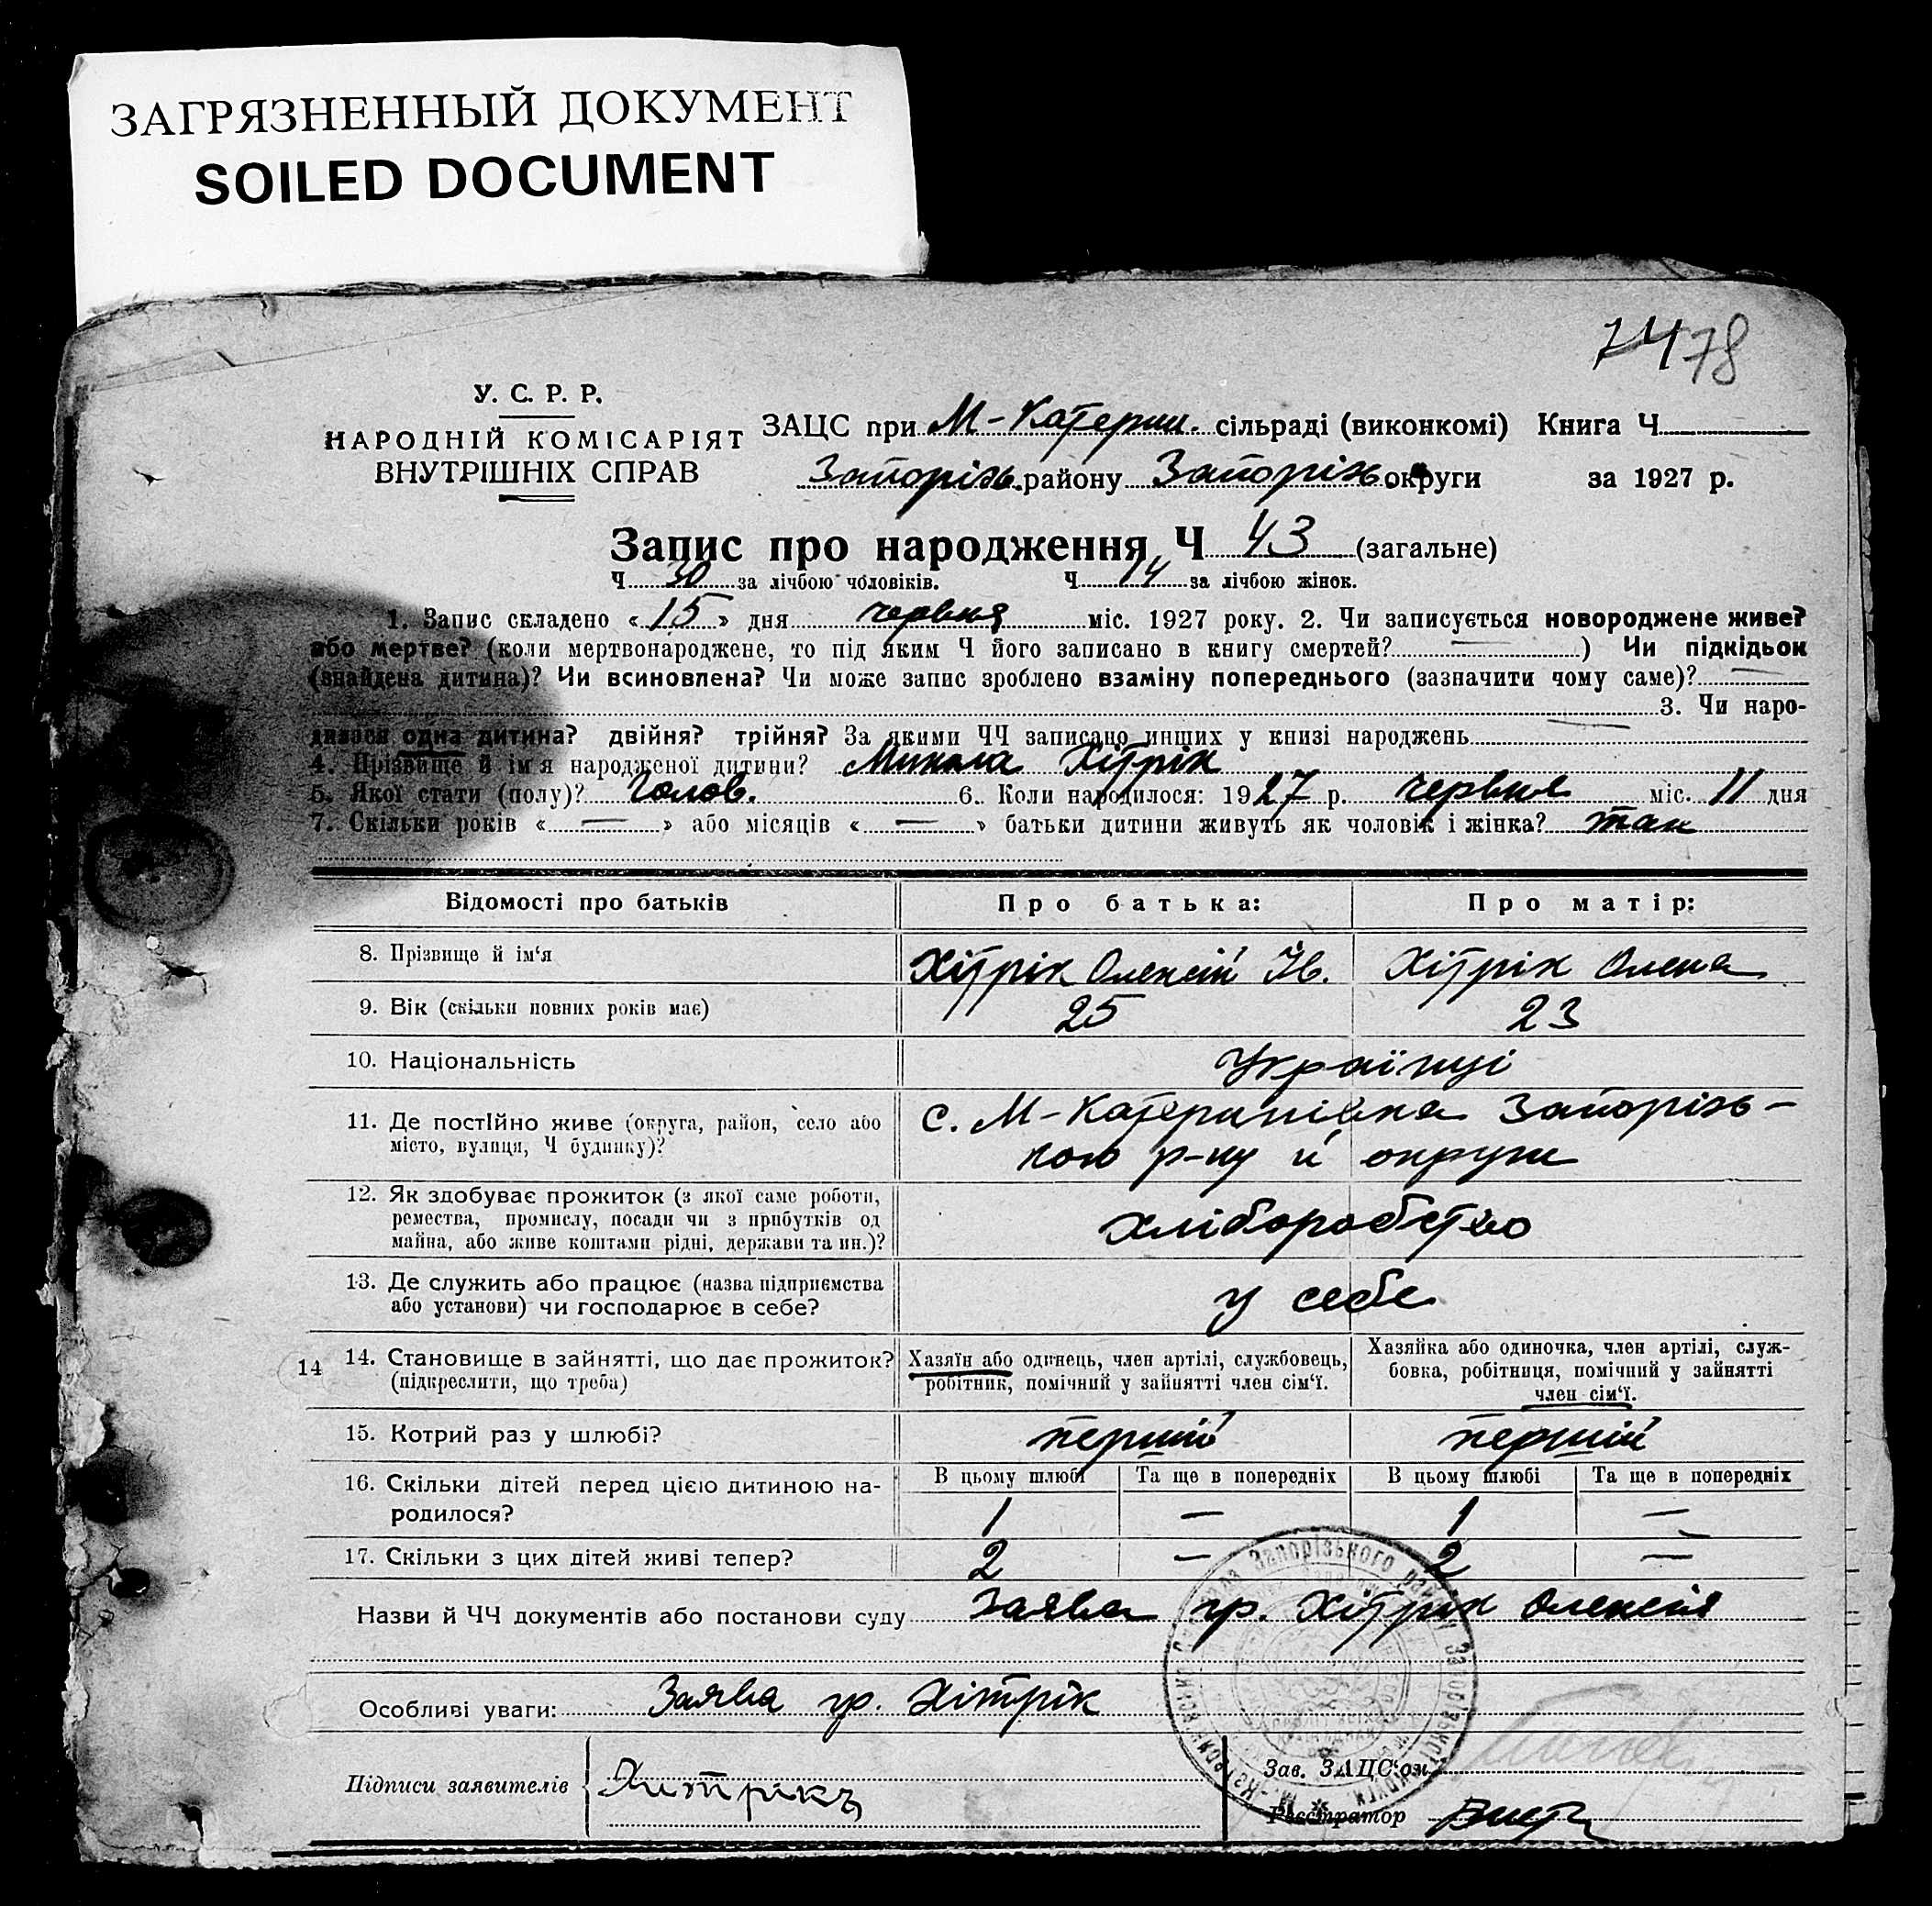 ЗАГРЯЗНЕННЫЙ ДОКУМЕНТ
SOILED DOCUMENT
74 78
У. С. Р. Р.
НАРОДНІЙ КОМІСАРІЯТ
ВНУТРІШНІХ СПРАВ
ЗАЦС при М-Катерин. сільраді (виконкомі) Книга Ч
Запорізь. району Запорізь. округи за 1927 р.
Запис про народження Ч 43 (загальне)
Ч 30 за лічбою чоловіків. Ч 14 за лічбою жінок.
1. Запис складено «15» дня червня міс. 1927 року. 2. Чи записується новороджене живе?
або мертве? (коли мертвонароджене, то під яким Ч його записано в книгу смертей? — ) Чи підкідьок
(знайдена дитина)? Чи всиновлена? Чи може запис зроблено взаміну попереднього (зазначити чому саме)? —
3. Чи наро-
дилася одна дитина? двійня? трійня? За якими ЧЧ записано инших у книзі народжень —
4. Прізвище й ім'я народженої дитини? Микола Хітрік
5. Якої стати (полу)? Чолов. 6. Коли народилося: 1927 р. червня міс. 11 дня
7. Скільки років « — » або місяців « — » батьки дитини живуть як чоловік і жінка? так
Відомості про батьків Про батька: Про матір:
8. Прізвище й ім'я Хітрік Олексій Ів. Хітрік Олена
9. Вік (скільки повних років має) 25 23
10. Національність Українці
11. Де постійно живе (округа, район, село або
місто, вулиця, Ч будинку)?
с. М-Катеринівка Запорізь-
кого р-ну й округи
12. Як здобуває прожиток (з якої саме роботи,
ремества, промислу, посади чи з прибутків од
майна, або живе коштами рідні, держави та ин.)?
хліборобство
13. Де служить або працює (назва підприємства
або установи) чи господарює в себе?
у себе
14
14. Становище в зайнятті, що дає прожиток?
(підкреслити, що треба)
Хазяїн або одинець, член артілі, службовець,
робітник, помічний у зайнятті член сім'ї.
Хазяйка або одиночка, член артілі, служ-
бовка, робітниця, помічний у зайнятті
член сім'ї.
15. Котрий раз у шлюбі? перший перший
16. Скільки дітей перед цією дитиною на-
родилося?
В цьому шлюбі Та ще в попередніх В цьому шлюбі Та ще в попередніх
1 — 1 —
17. Скільки з цих дітей живі тепер? 2 — 2 —
Назви й ЧЧ документів або постанови суду Заява гр. Хітрік Олексія
Особливі уваги: Заява гр. Хітрік
Підписи заявителів Хитрікъ
Зав. ЗАЦС'ом
Реєстратор
Запорізького